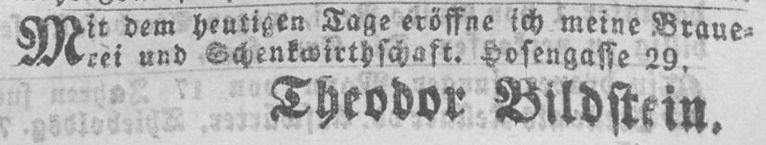 Mit dem heutigen Tage eröffne ich meine Braue-
rei und Schenkwirthschaft. Hosengasse 29.
Theodor Bildstein.